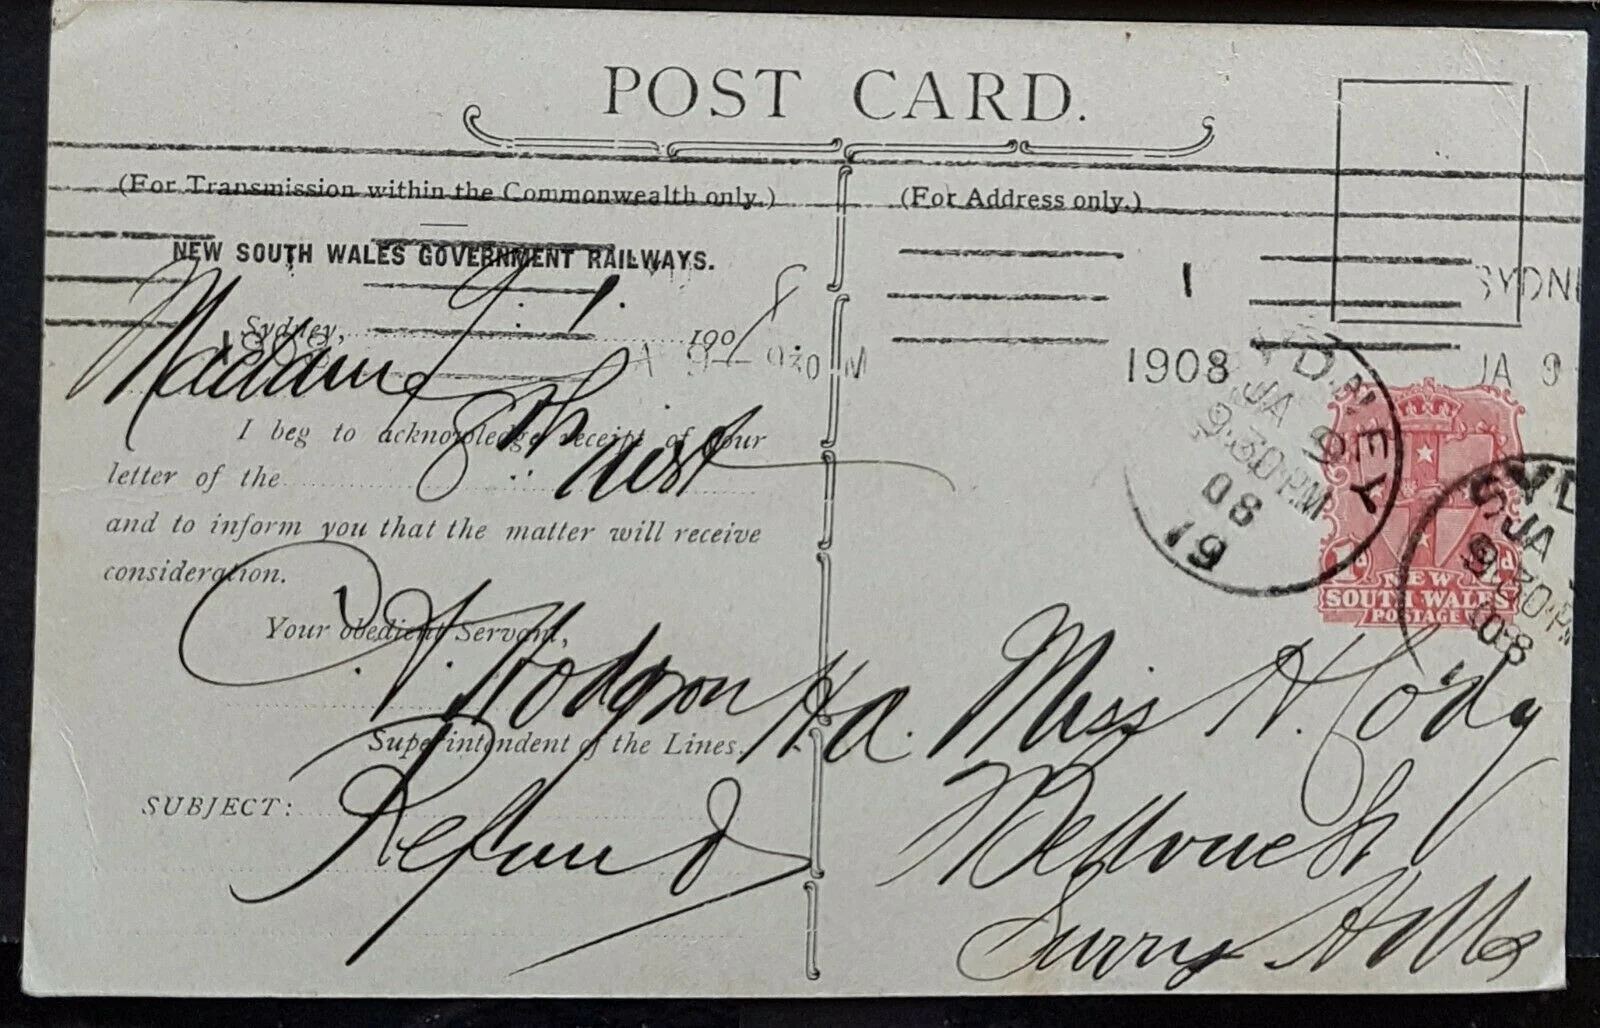 POST CARD.
(For Transmission within the Commonwealth only.)
NEW SOUTH WALES GOVERNMENT RAILWAYS.
Sydney, 9. 1. 1908
Madam
I beg to acknowledge receipt of your
letter of the 8th inst
and to inform you that the matter will receive
consideration.
Your obedient Servant,
Hodgson
Superintendent of the Lines.
SUBJECT:
Refund
(For Address only.)
1
1908
SYDN
JA 9
1908
A 9 9 30 M
SYDNEY
JA 9
9·30 P.M
08
19
SYD
JA
9·30 P
08
1d
1d
NEW
SOUTH WALES
POSTAGE
Miss H. Cody
Bellvue St
Surry Hills